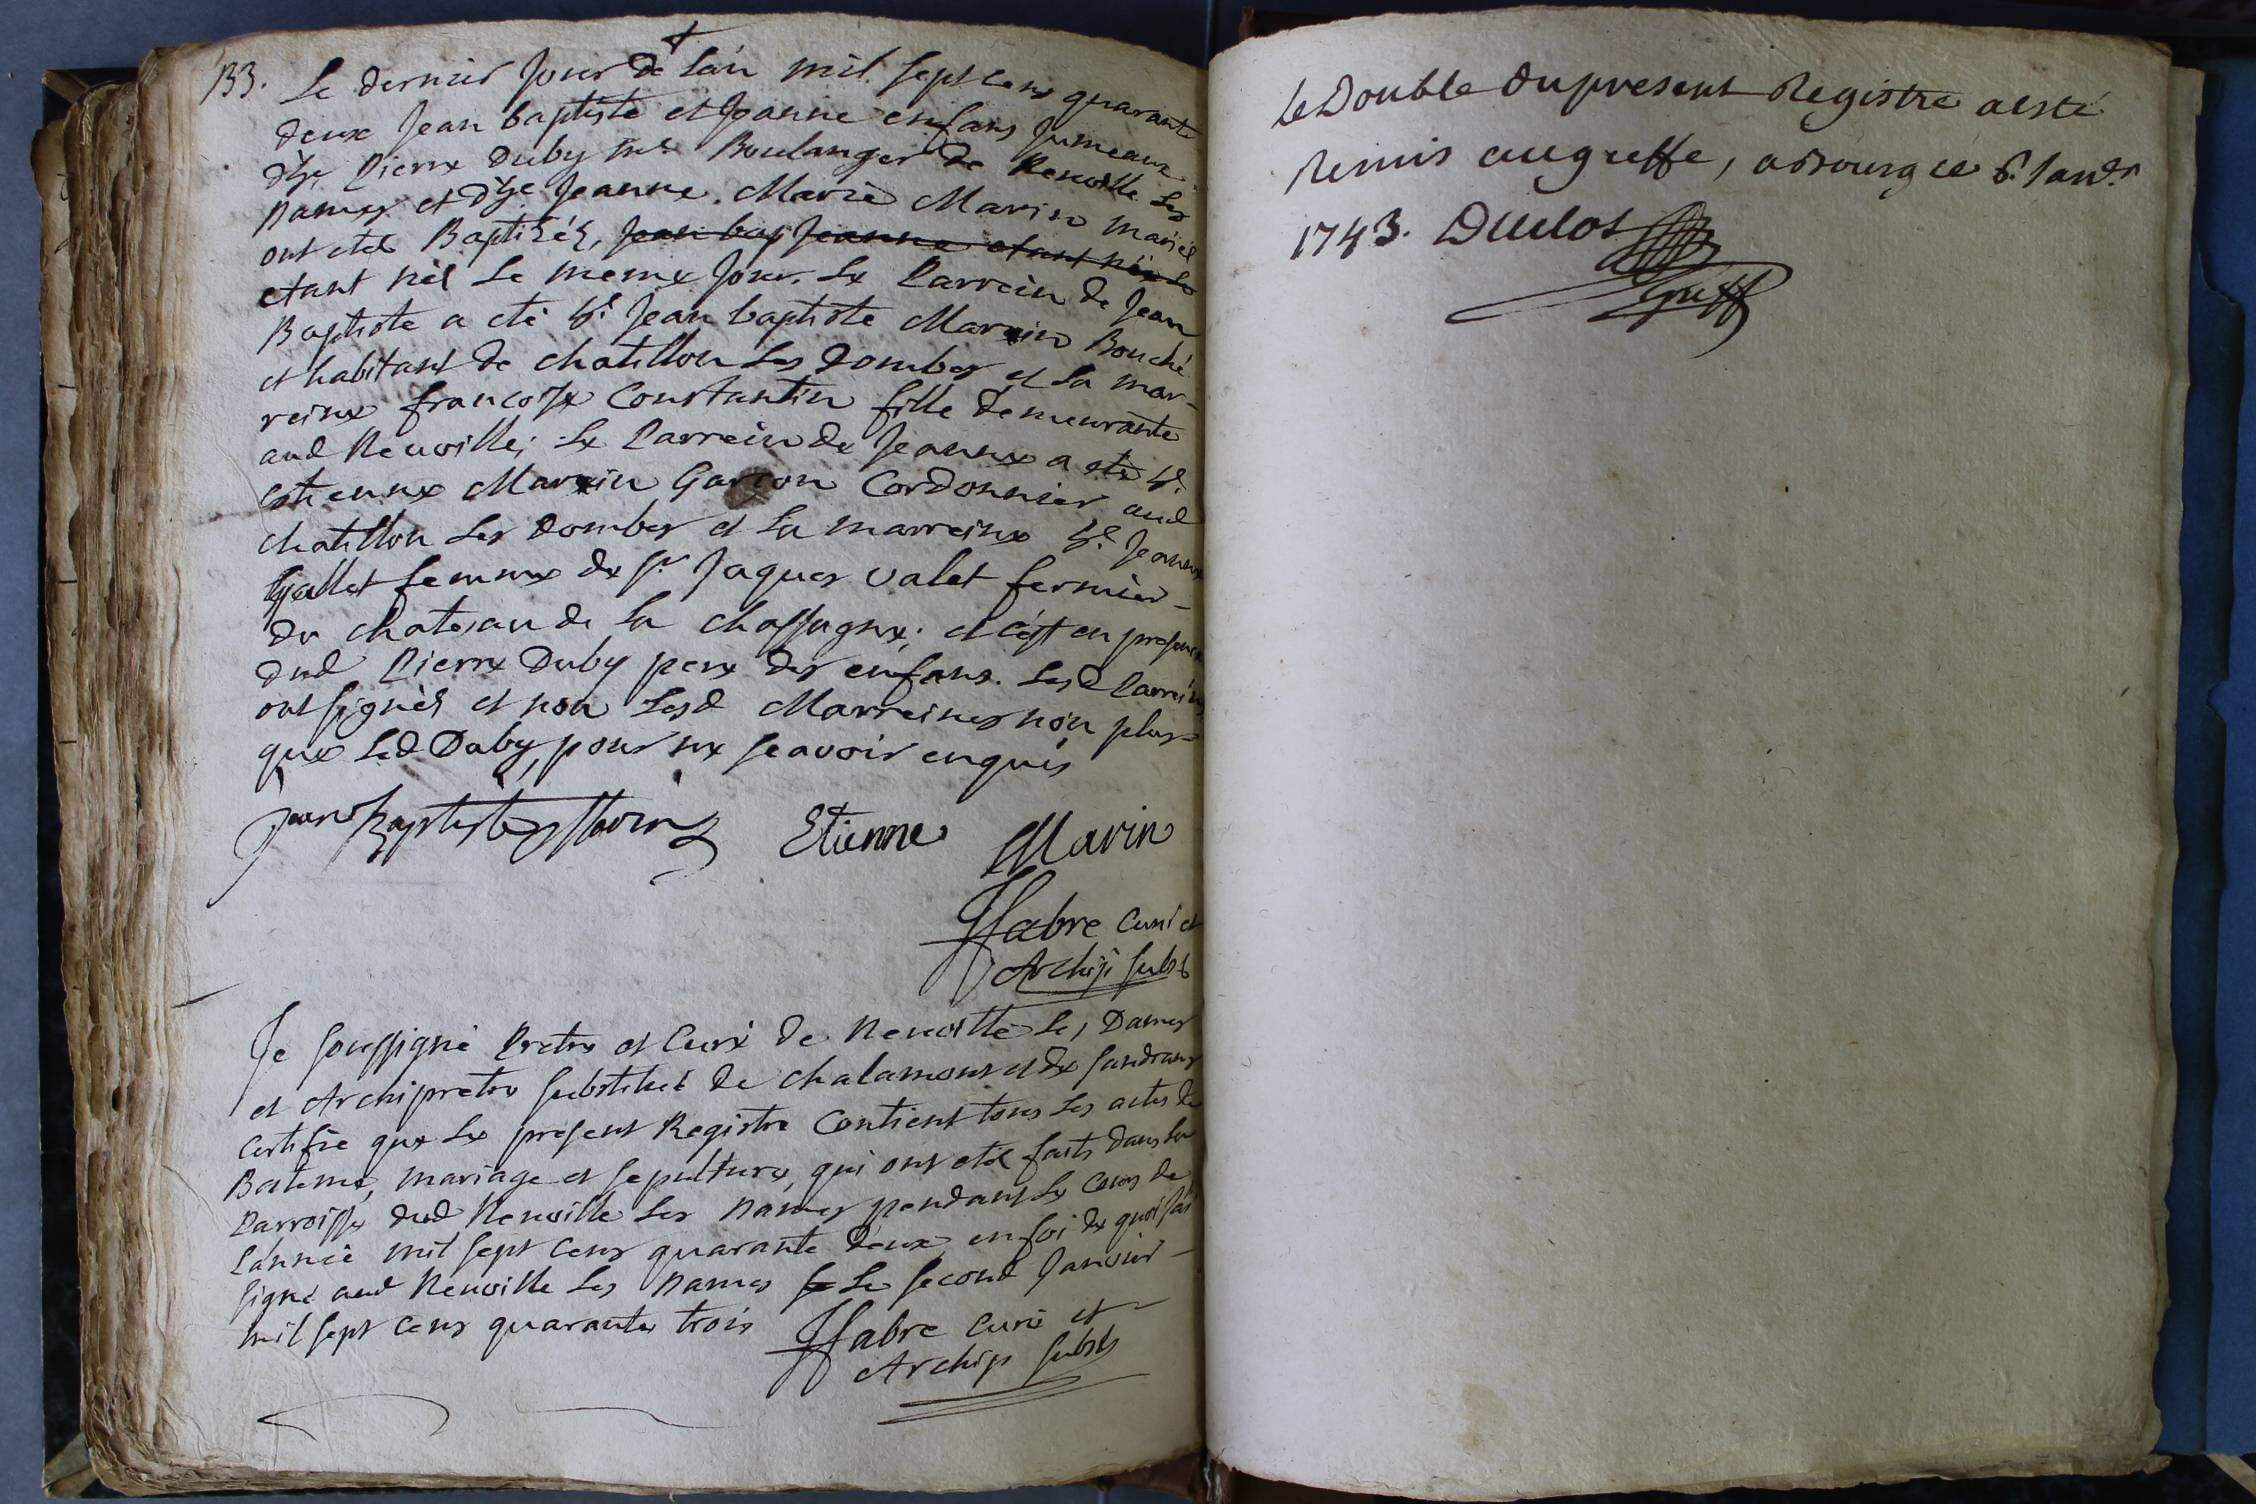 133. Le dernier jour de l'an mil sept cens quarante
deux Jean baptiste et Jeanne enfans Jumeaux
d'h.e Pierre Duby m.e Boulanger de Neuville Les
Dames et d'h.e Jeanne Marie Marin mariés
ont eté Baptisés, Jean bap Jeanne etant née Le
etant nés Le meme jour. Le Parrein de Jean
Baptiste a eté h.e Jean baptiste Marin Bouché
et habitant de chatillon Les Dombes et La mar-
reine francoise Constantin fille demeurante
aud Neuville; Le Parrein de Jeanne a eté h.e
Etienne Marin Garçon Cordonnier aud
chatillon Les Dombes et La marreine h.e Jeanne
Gallet femme de S.r Jaques valet fermier-
du chateau de La chassagne. et c'est en presence
dud Pierre Duby pere des enfans. Lesd Parreins
ont signés et non Lesd Marreines non plus=
que Led Duby, pour ne sçavoir enquis
Jean Baptiste Marin Etienne Marin
JFabre Curé et
Archip Subst
Je soussigné Pretre et Curé de Neuville Les Dames
et Archipretre substitué de chalamont et de sandrans
Certifie que Le present Registre Contient tous Les actes de
Bateme, mariage et sepulture, qui ont eté faits dans La
Parroisse dud Neuville Les Dames pendant Le cours de
L'année mil sept cens quarante deux en foi de quoi j'ai
signé aud Neuville Les Dames Le Second Janvier-
mil sept cens quarante trois JFabre curé et
Archip Subst
le Double du present Registre a esté
Remis au greffe, a Bourg ce 8. Janv.r
1743. Duclos
Greff